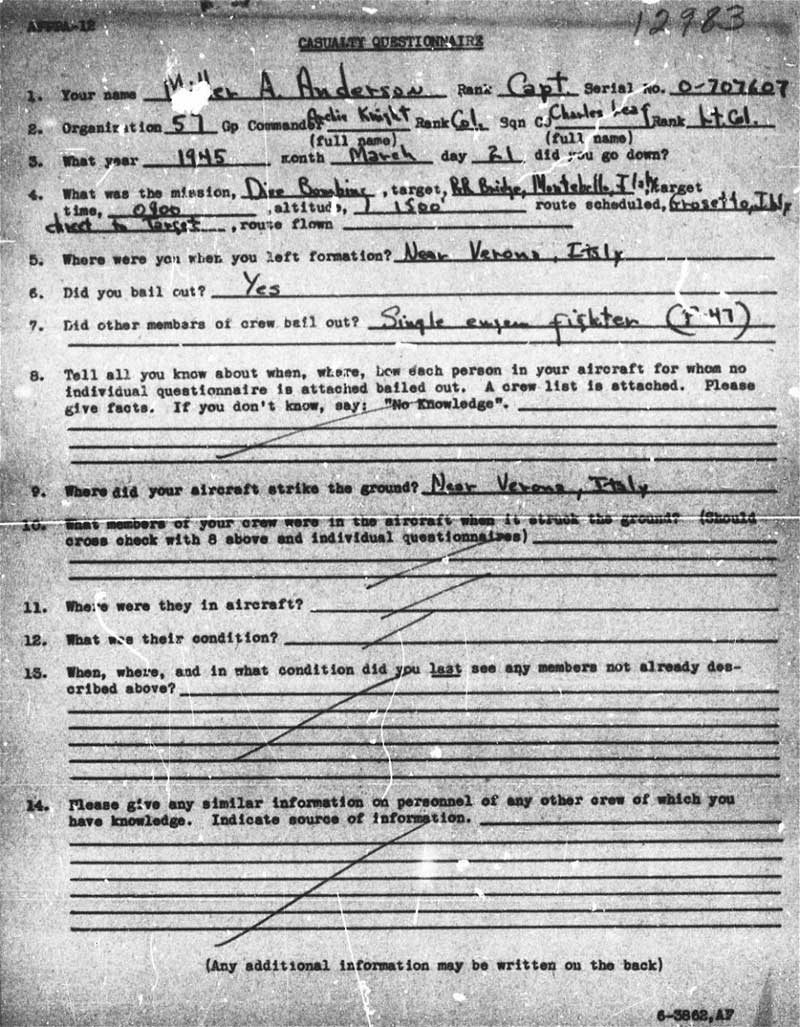 12983
AFPPA-12
CASUALTY QUESTIONNAIRE
1. Your name Miller A. Anderson Rank Capt. Serial No. O-707607
2. Organization 57 Gp Commander Archie Knight Rank Col. Sqn CO Charles Leaf Rank Lt. Col.
(full name) (full name)
3. What year 1945 month March day 21 did you go down?
4. What was the mission, Dive Bombing, target, RR Bridge, Montebello, Italy target
time, 0900, altitude, 1500' route scheduled, Grosetto, Italy
direct to Target, route flown
5. Where were you when you left formation? Near Verona, Italy
6. Did you bail out? Yes
7. Did other members of crew bail out? Single engine fighter (P-47)
8. Tell all you know about when, where, how each person in your aircraft for whom no
individual questionnaire is attached bailed out. A crew list is attached. Please
give facts. If you don't know, say: "No Knowledge".
9. Where did your aircraft strike the ground? Near Verona, Italy
10. What members of your crew were in the aircraft when it struck the ground? (Should
cross check with 8 above and individual questionnaires)
11. Where were they in aircraft?
12. What was their condition?
13. When, where, and in what condition did you last see any members not already des-
cribed above?
14. Please give any similar information on personnel of any other crew of which you
have knowledge. Indicate source of information.
(Any additional information may be written on the back)
6-3862,AF